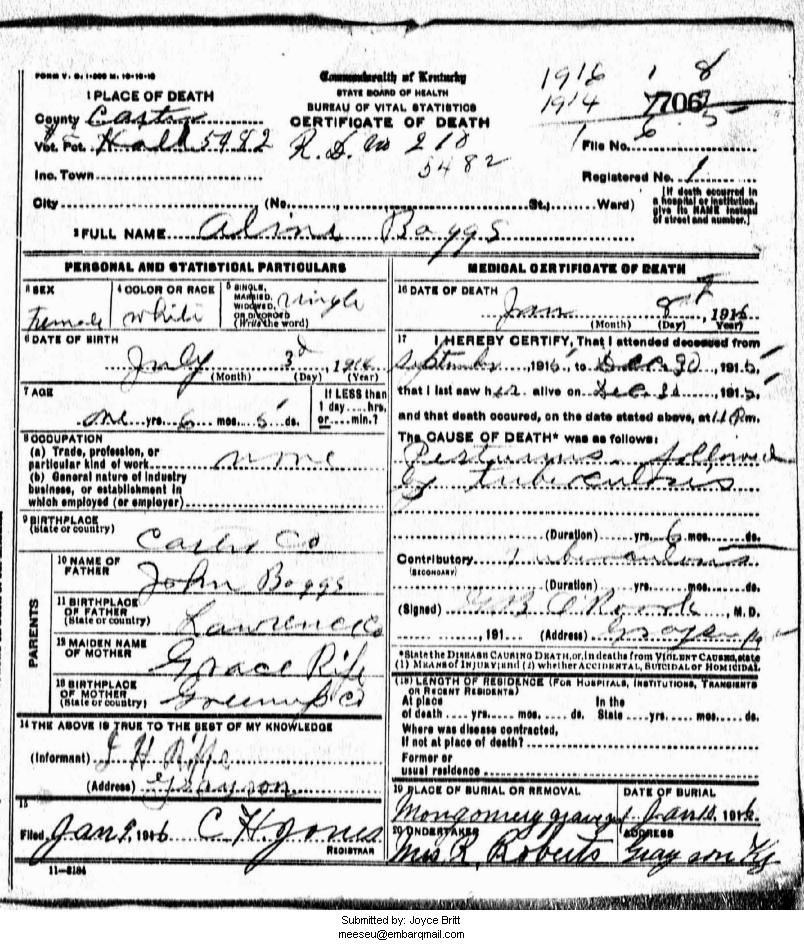 FORM V. S. 1-200 M. 10-10-10
Commonwealth of Kentucky
STATE BOARD OF HEALTH
BUREAU OF VITAL STATISTICS
CERTIFICATE OF DEATH
1916 1 8
1914 7 3
7706
1 6 5
1 PLACE OF DEATH
County Carter
Vot. Pct. Hall 5482 R. D. No 210
5482
File No.
Inc. Town
Registered No. 1
City (No. St.; Ward)
[If death occurred in a hospital or institution, give its NAME instead of street and number.]
2 FULL NAME Aline Boggs
PERSONAL AND STATISTICAL PARTICULARS
3 SEX Female
4 COLOR OR RACE White
5 SINGLE, MARRIED, WIDOWED, OR DIVORCED (Write the word) single
6 DATE OF BIRTH
July 3d 191
(Month) (Day) (Year)
7 AGE
one yrs. 6 mos. 5 ds.
If LESS than 1 day hrs. or min.?
8 OCCUPATION
(a) Trade, profession, or particular kind of work none
(b) General nature of industry business, or establishment in which employed (or employer)
9 BIRTHPLACE (State or country) Carter Co
PARENTS
10 NAME OF FATHER John Boggs
11 BIRTHPLACE OF FATHER (State or country) Lawrence Co
12 MAIDEN NAME OF MOTHER Grace Rife
13 BIRTHPLACE OF MOTHER (State or country) Greenup Co
14 THE ABOVE IS TRUE TO THE BEST OF MY KNOWLEDGE
(Informant) J H Riffe
(Address) Grayson
15
Filed Jan 9, 1916 C H Jones
REGISTRAR
11-3184
MEDICAL CERTIFICATE OF DEATH
16 DATE OF DEATH
Jan 8th 1916
(Month) (Day) (Year)
17 I HEREBY CERTIFY, That I attended deceased from
September, 1915, to Dec 30 1915
that I last saw her alive on Dec 30 1915
and that death occured, on the date stated above, at 11 P.m.
The CAUSE OF DEATH* was as follows:
Pertussis followed
by tuberculosis
(Duration) yrs. 6 mos. ds.
Contributory Tuberculosis
(SECONDARY)
(Duration) yrs. mos. ds.
(Signed) O'Roark M.D.
, 191 (Address) Grayson Ky
*State the DISEASE CAUSING DEATH, or, in deaths from VIOLENT CAUSES, state
(1) MEANS of INJURY; and (2) whether ACCIDENTAL, SUICIDAL or HOMICIDAL.
(18) LENGTH OF RESIDENCE (FOR HOSPITALS, INSTITUTIONS, TRANSIENTS OR RECENT RESIDENTS)
At place of death yrs. mos. ds. In the State yrs. mos. ds.
Where was disease contracted, If not at place of death?
Former or usual residence
19 PLACE OF BURIAL OR REMOVAL
Montgomery graveyd
DATE OF BURIAL
Jan 10, 1916
20 UNDERTAKER
Mrs R Roberts
ADDRESS
Grayson Ky
Submitted by: Joyce Britt
meeseu@embarqmail.com